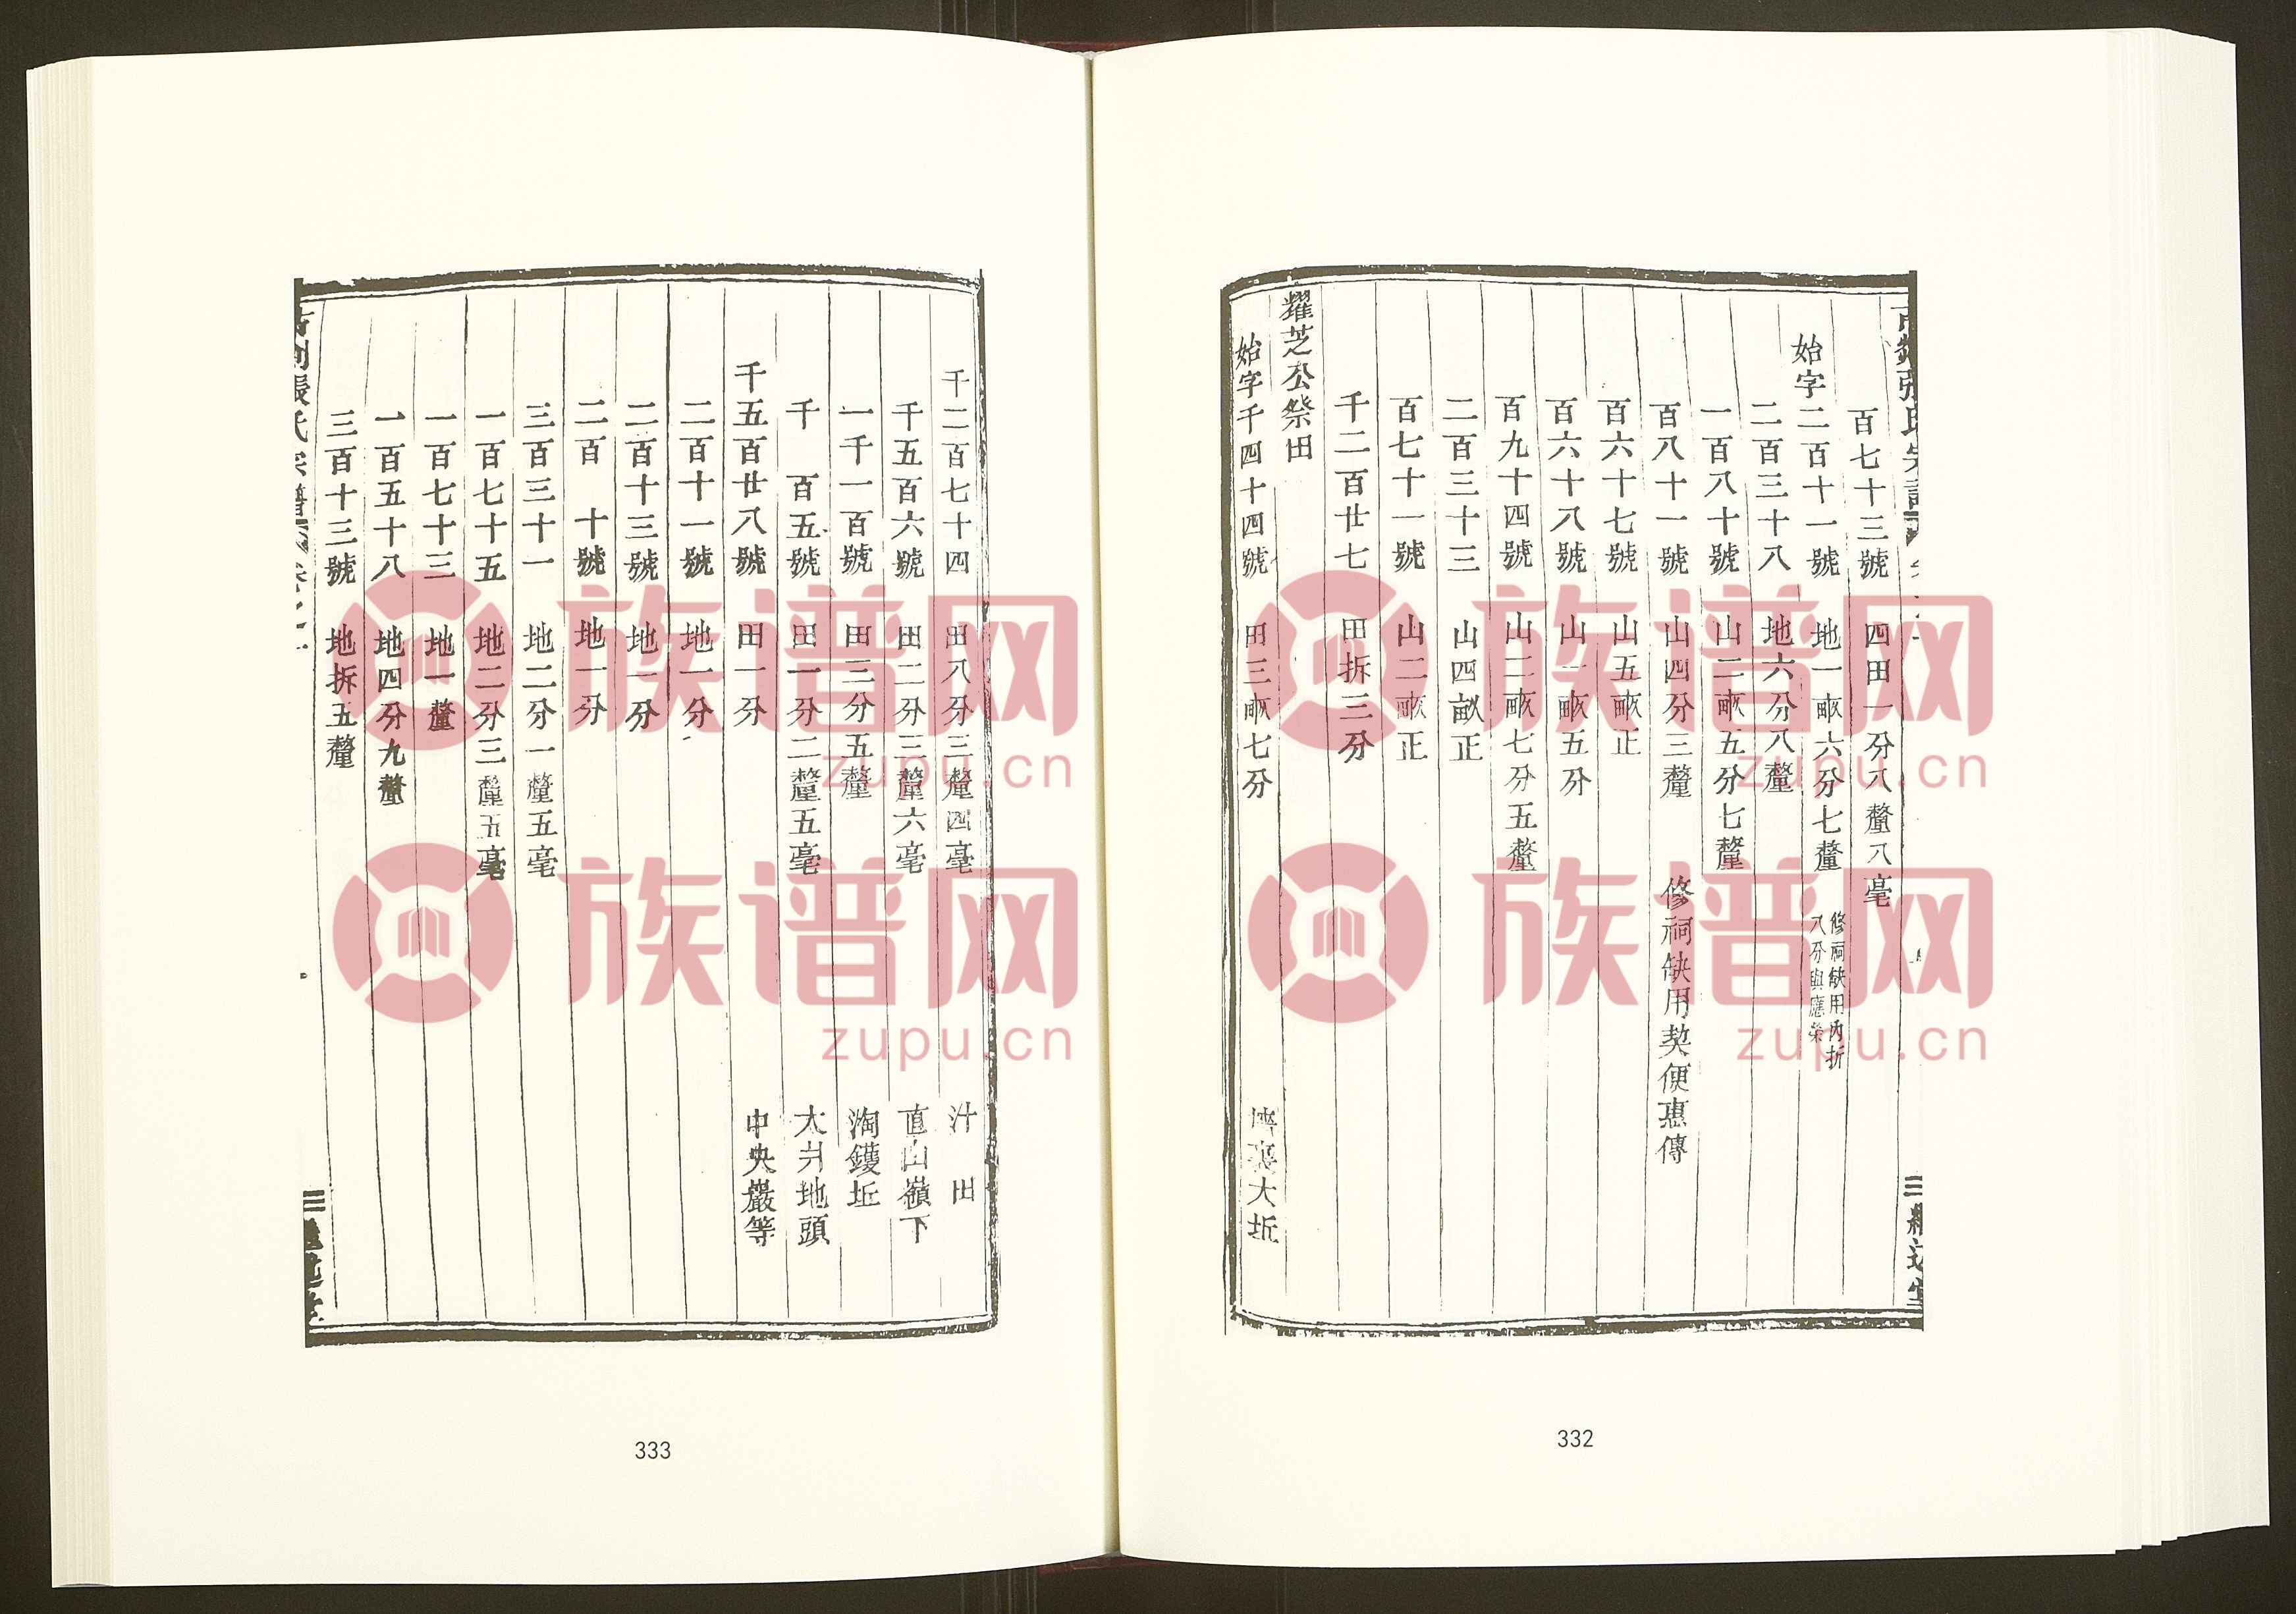 百七十三號 四田一分八釐八毫
始字二百十一號 地一畝六分七釐 修祠缺用內折
八分與應榮
二百三十八 地六分八釐
一百八十號 山二畝五分七釐
百八十一號 山四分三釐 修祠缺用契便惠傳
百六十七號 山五畝正
百六十八號 山一畝五分
百九十四號 山二畝七分五釐
二百三十三 山四畝正
百七十一號 山二畝正
千二百廿七 田拆三分
耀芝公祭田
始字千四十四號 田三畝七分 大坵
332
千二百七十四 田八分三釐四毫 汁田
千五百六號 田二分三釐六毫 直山嶺下
一千一百號 田三分五釐 淘鑊坵
千 百五號 田一分二釐五毫 大井地頭
千五百廿八號 田一分 中央巖等
二百十一號 地一分
二百十三號 地一分
二百 十號 地一分
三百三十一 地二分一釐五毫
一百七十五 地二分三釐五毫
一百七十三 地一釐
一百五十八 地四分九釐
三百十三號 地拆五釐
張氏宗譜
333
族谱网
zupu.cn
族谱网
zupu.cn
族谱网
zupu.cn
族谱网
zupu.cn